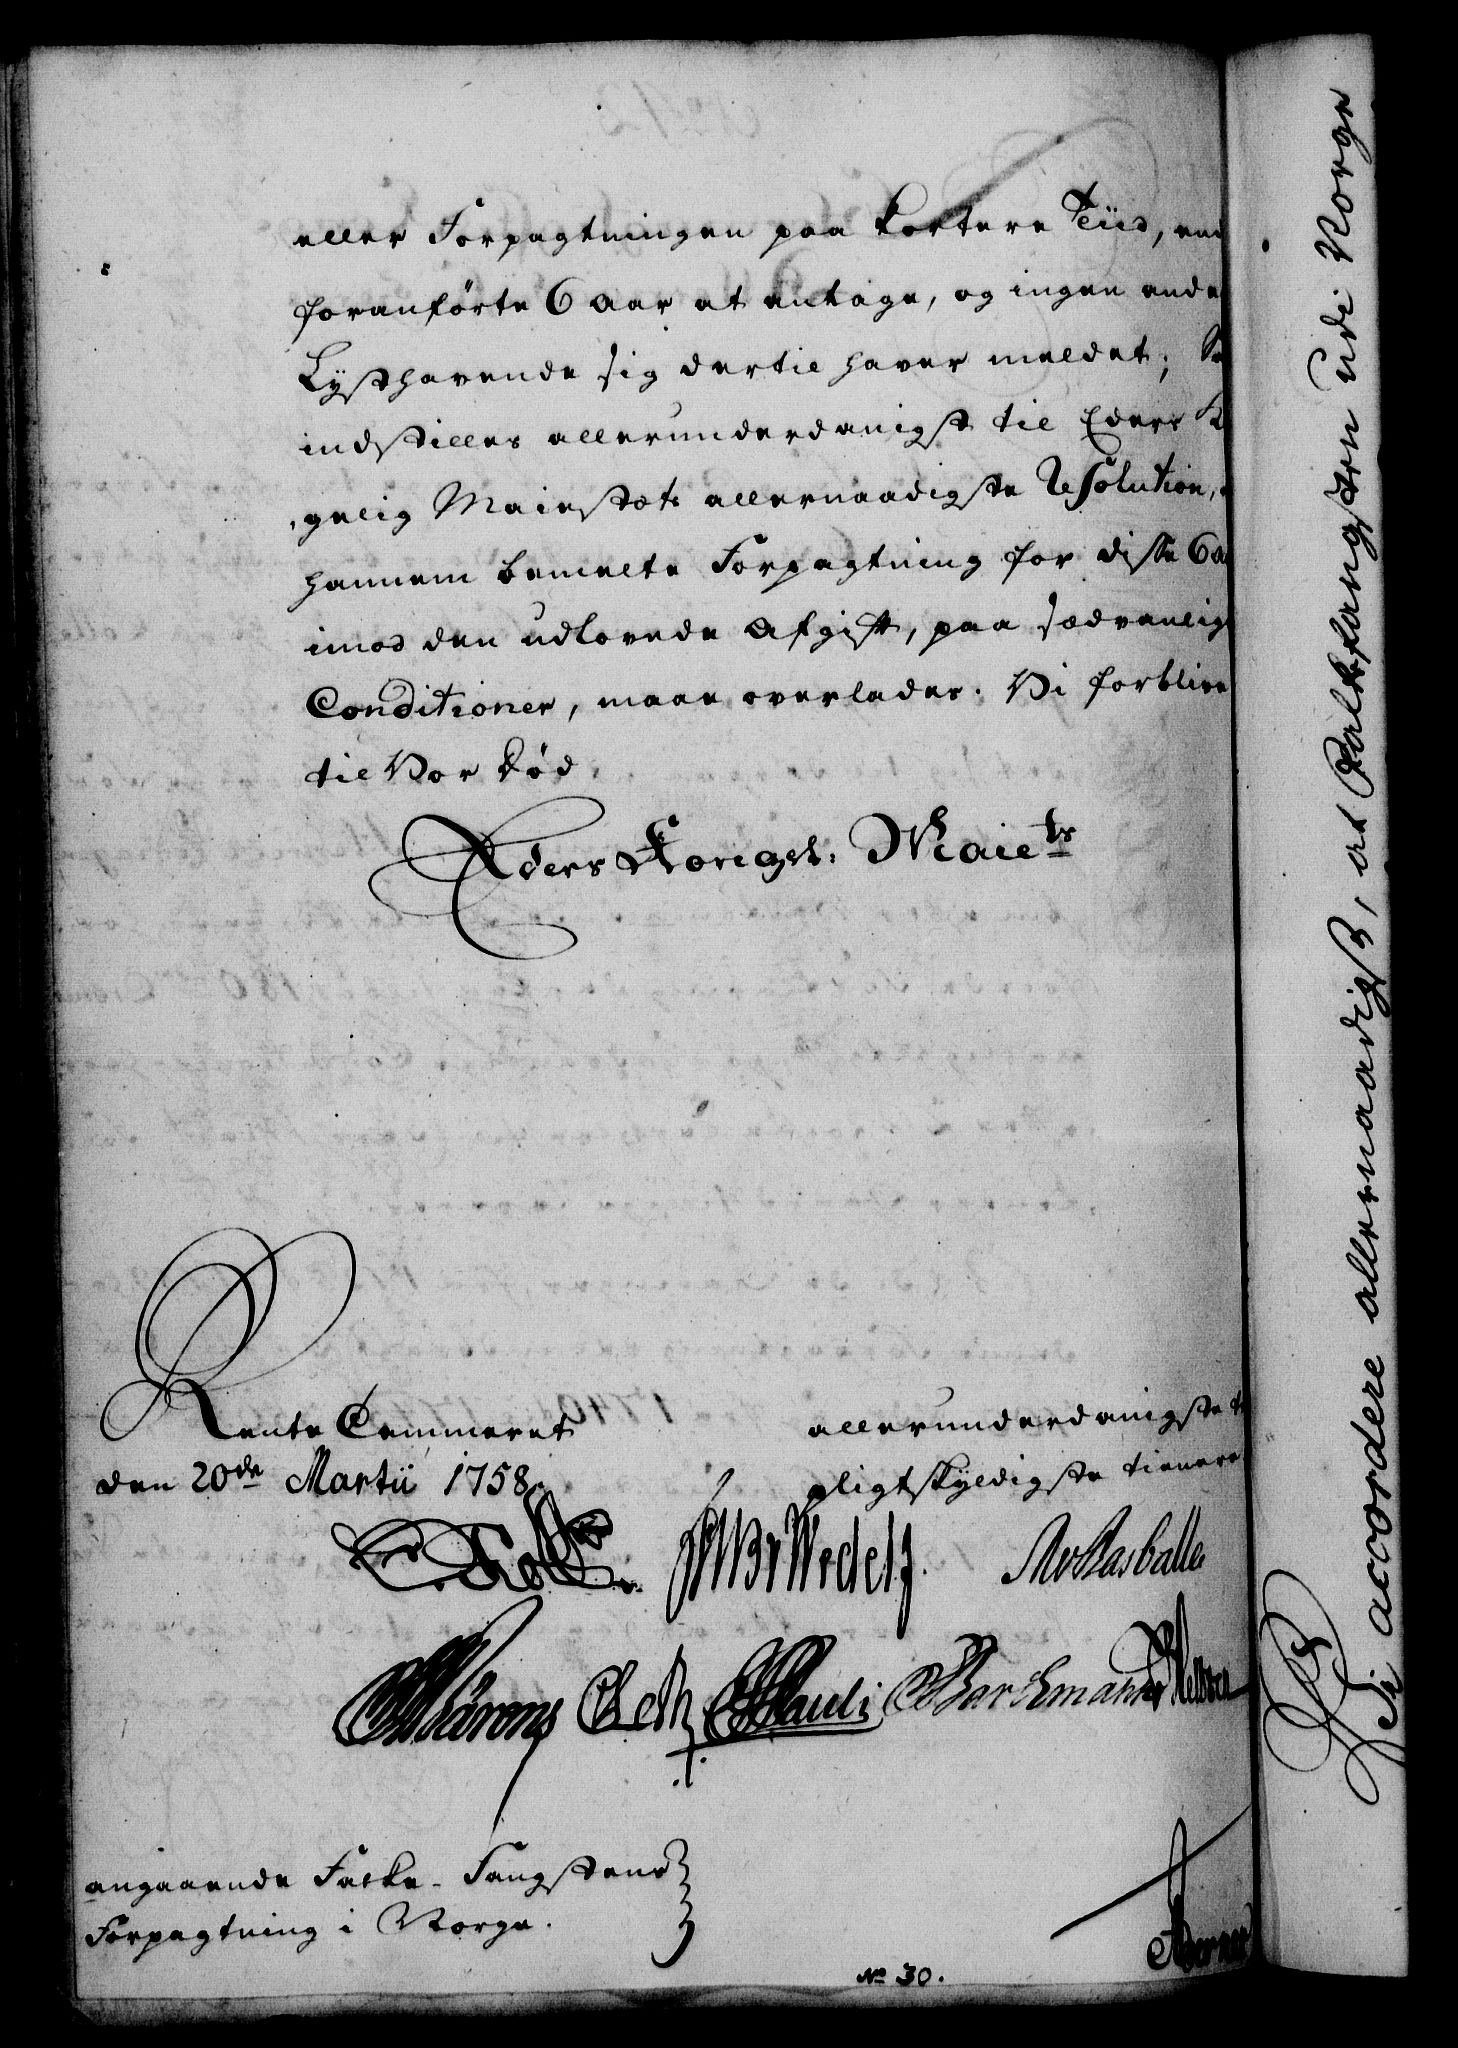 eller Forpagtningen paa kortere Tiid, end
foranførte 6 Aar at antage, og ingen ande
Lysthavende sig dertil haver meldet; Saa
indstilles allerunderdanigst til Eders K
gelig Maiestæts allernaadigste Resolution,
hannem bemelte Forpagtning for disse 6 A
imod den udlovede Afgift, paa sædvanlig
Conditioner, maae overlades. Vi forblive
til Vor Død
Eders Kongel: Maiets
Rente Cammeret
den 20de Martii 1758.
allerunderdanigste
pligtskyldigste tienere
Wedelj.
Rasballe
Pauli
angaaende Falke-Fangstens
Forpagtning i Norge.
No 30.
Vi accordere allernaadigst, at Falkefangsten udi Norge